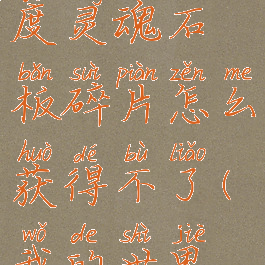 度灵魂石
bǎn suì piàn zěn me
板碎片怎么
huò dé bù liǎo
获得不了(
wǒ de shì jiè
我的世界